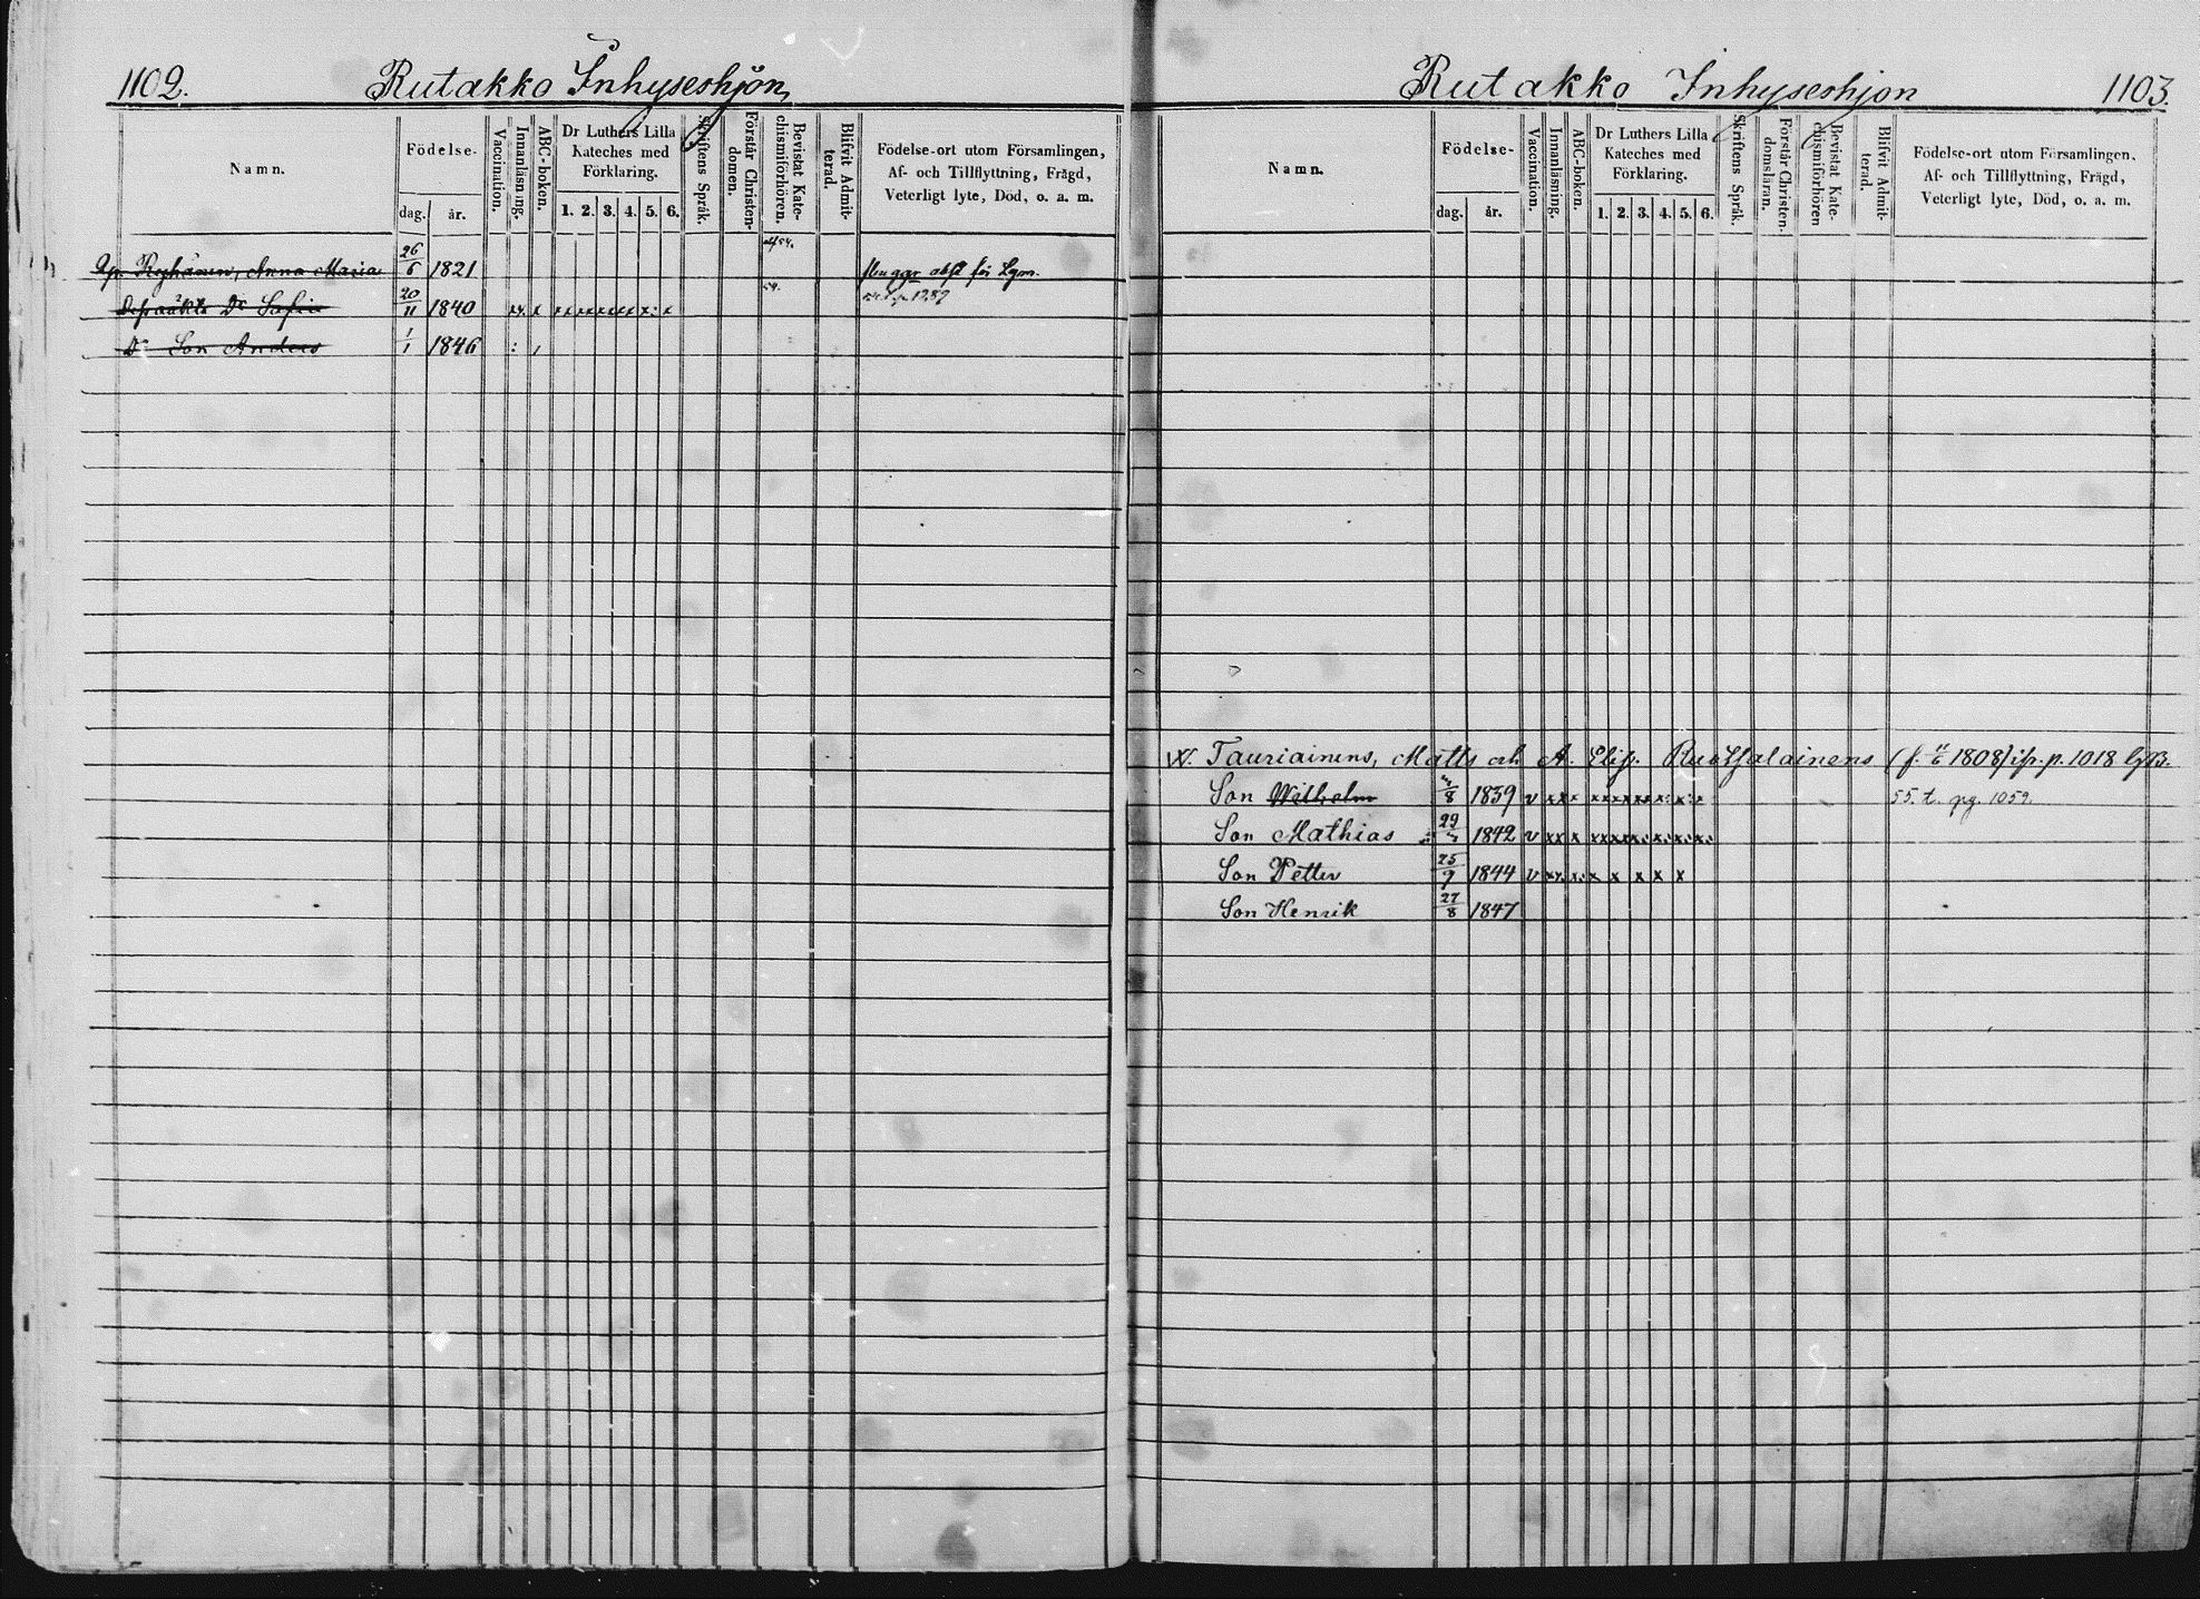 1102.
Rutakko Inhyseshjon
Namn.
Födelse-
dag.
år.
Vaccination.
Innanläsning.
ABC-boken.
Dr Luthers Lilla
Kateches med
Förklaring.
1. 2. 3. 4. 5. 6.
Skriftens Språk.
Förstår Christen-
domen.
Bevistat Kate-
chismiförhören.
Blifvit Admit-
terad.
Födelse-ort utom Församlingen,
Af- och Tillflyttning, Frägd,
Veterligt lyte, Död, o. a. m.
Anna Maria 26/6 1821
Dr Sofia 20/11 1840 x x
54.
Dr Son Anders 1/1 1846
Rutakko Inhyseshjon
1103.
Namn.
Födelse-
dag.
år.
Vaccination.
Innanläsning.
ABC-boken.
Dr Luthers Lilla
Kateches med
Förklaring.
1. 2. 3. 4. 5. 6.
Skriftens Språk.
Förstår Christen-
domsläran.
Bevistat Kate-
chismiförhören
Blifvit Admit-
terad.
Födelse-ort utom Församlingen,
Af- och Tillflyttning, Frägd,
Veterligt lyte, Död, o. a. m.
Tauriainens, Matts och A. Elis. Ruotsalainens 1808 p. 1018
Son Wilhelm 1839 v 55. t. pg. 1059.
Son Mathias 29 1842 v
Son Petter 25/9 1844 v x x x x x
Son Henrik 27/8 1847